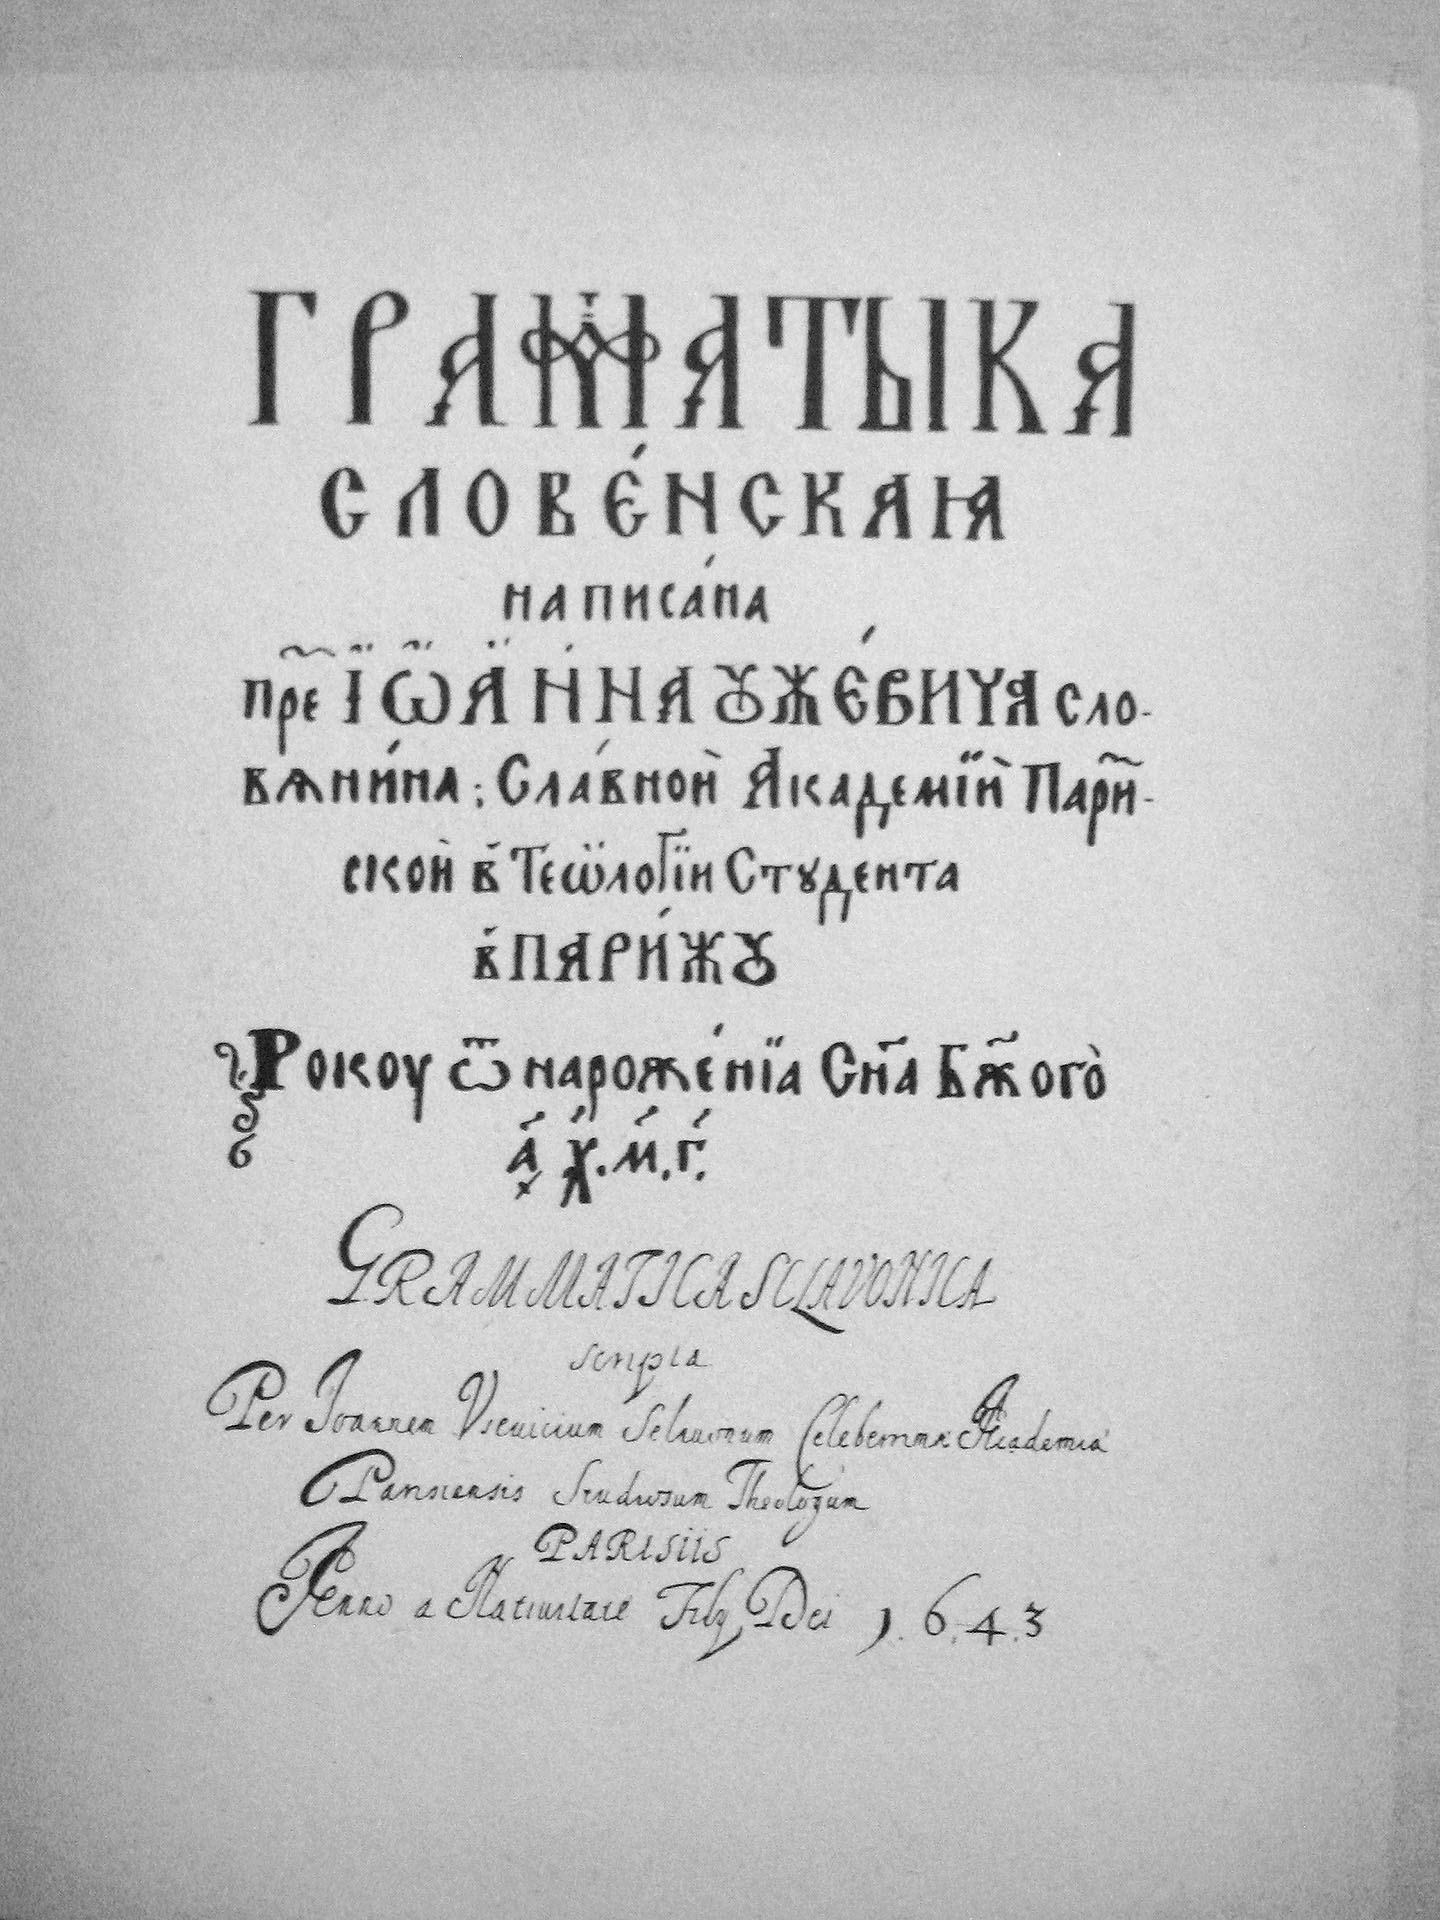 ГРАМАТЫКА
СЛОВЕ́НСКАꙖ
написа́на
пре Ї́ѠА́ННА ꙊЖЕ́ВИЧА сло-
вѧни́на; Сла́вной Академїи Пари-
ской в Теѡлоґїи Стꙋдента
в ПАРИ́ЖꙊ
Рокоу ѿ нароже́нїа Сн҃а Бж҃ого
҂а́ х́. м́. ѓ.
GRAMMATICA SCLAVONICA
scripta
Per Joannem Vscuicium Sclauonum Celeberrimæ Academiæ
Parisiensis studiosum Theologum
PARISIIS
Anno a Natiuitate Filij Dei 1. 6. 4. 3